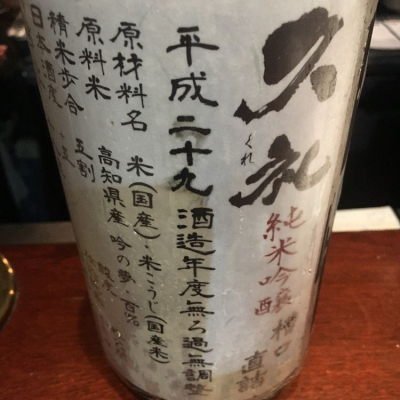 久礼
くれ
純米吟醸 槽口直詰
平成二十九酒造年度無ろ過無調整
原材料名 米(国産)・米こうじ(国産米)
原料米 高知県産 吟の夢・百%
精米歩合 五割
日本酒度
酸度